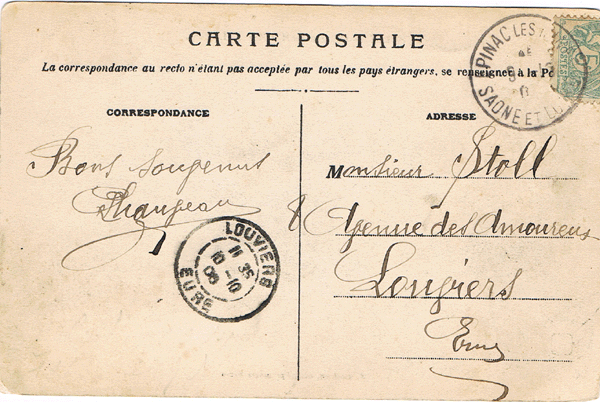 CARTE POSTALE
La correspondance au recto n'étant pas acceptée par tous les pays étrangers, se renseigner à la Po
CORRESPONDANCE
Bons souvenirs
ADRESSE
Monsieur Stoll
8 Avenue des Amoureux
Louviers
Eure
EPINAC LES
SAONE ET L
LOUVIERS
11 35
10 -10
06
EURE